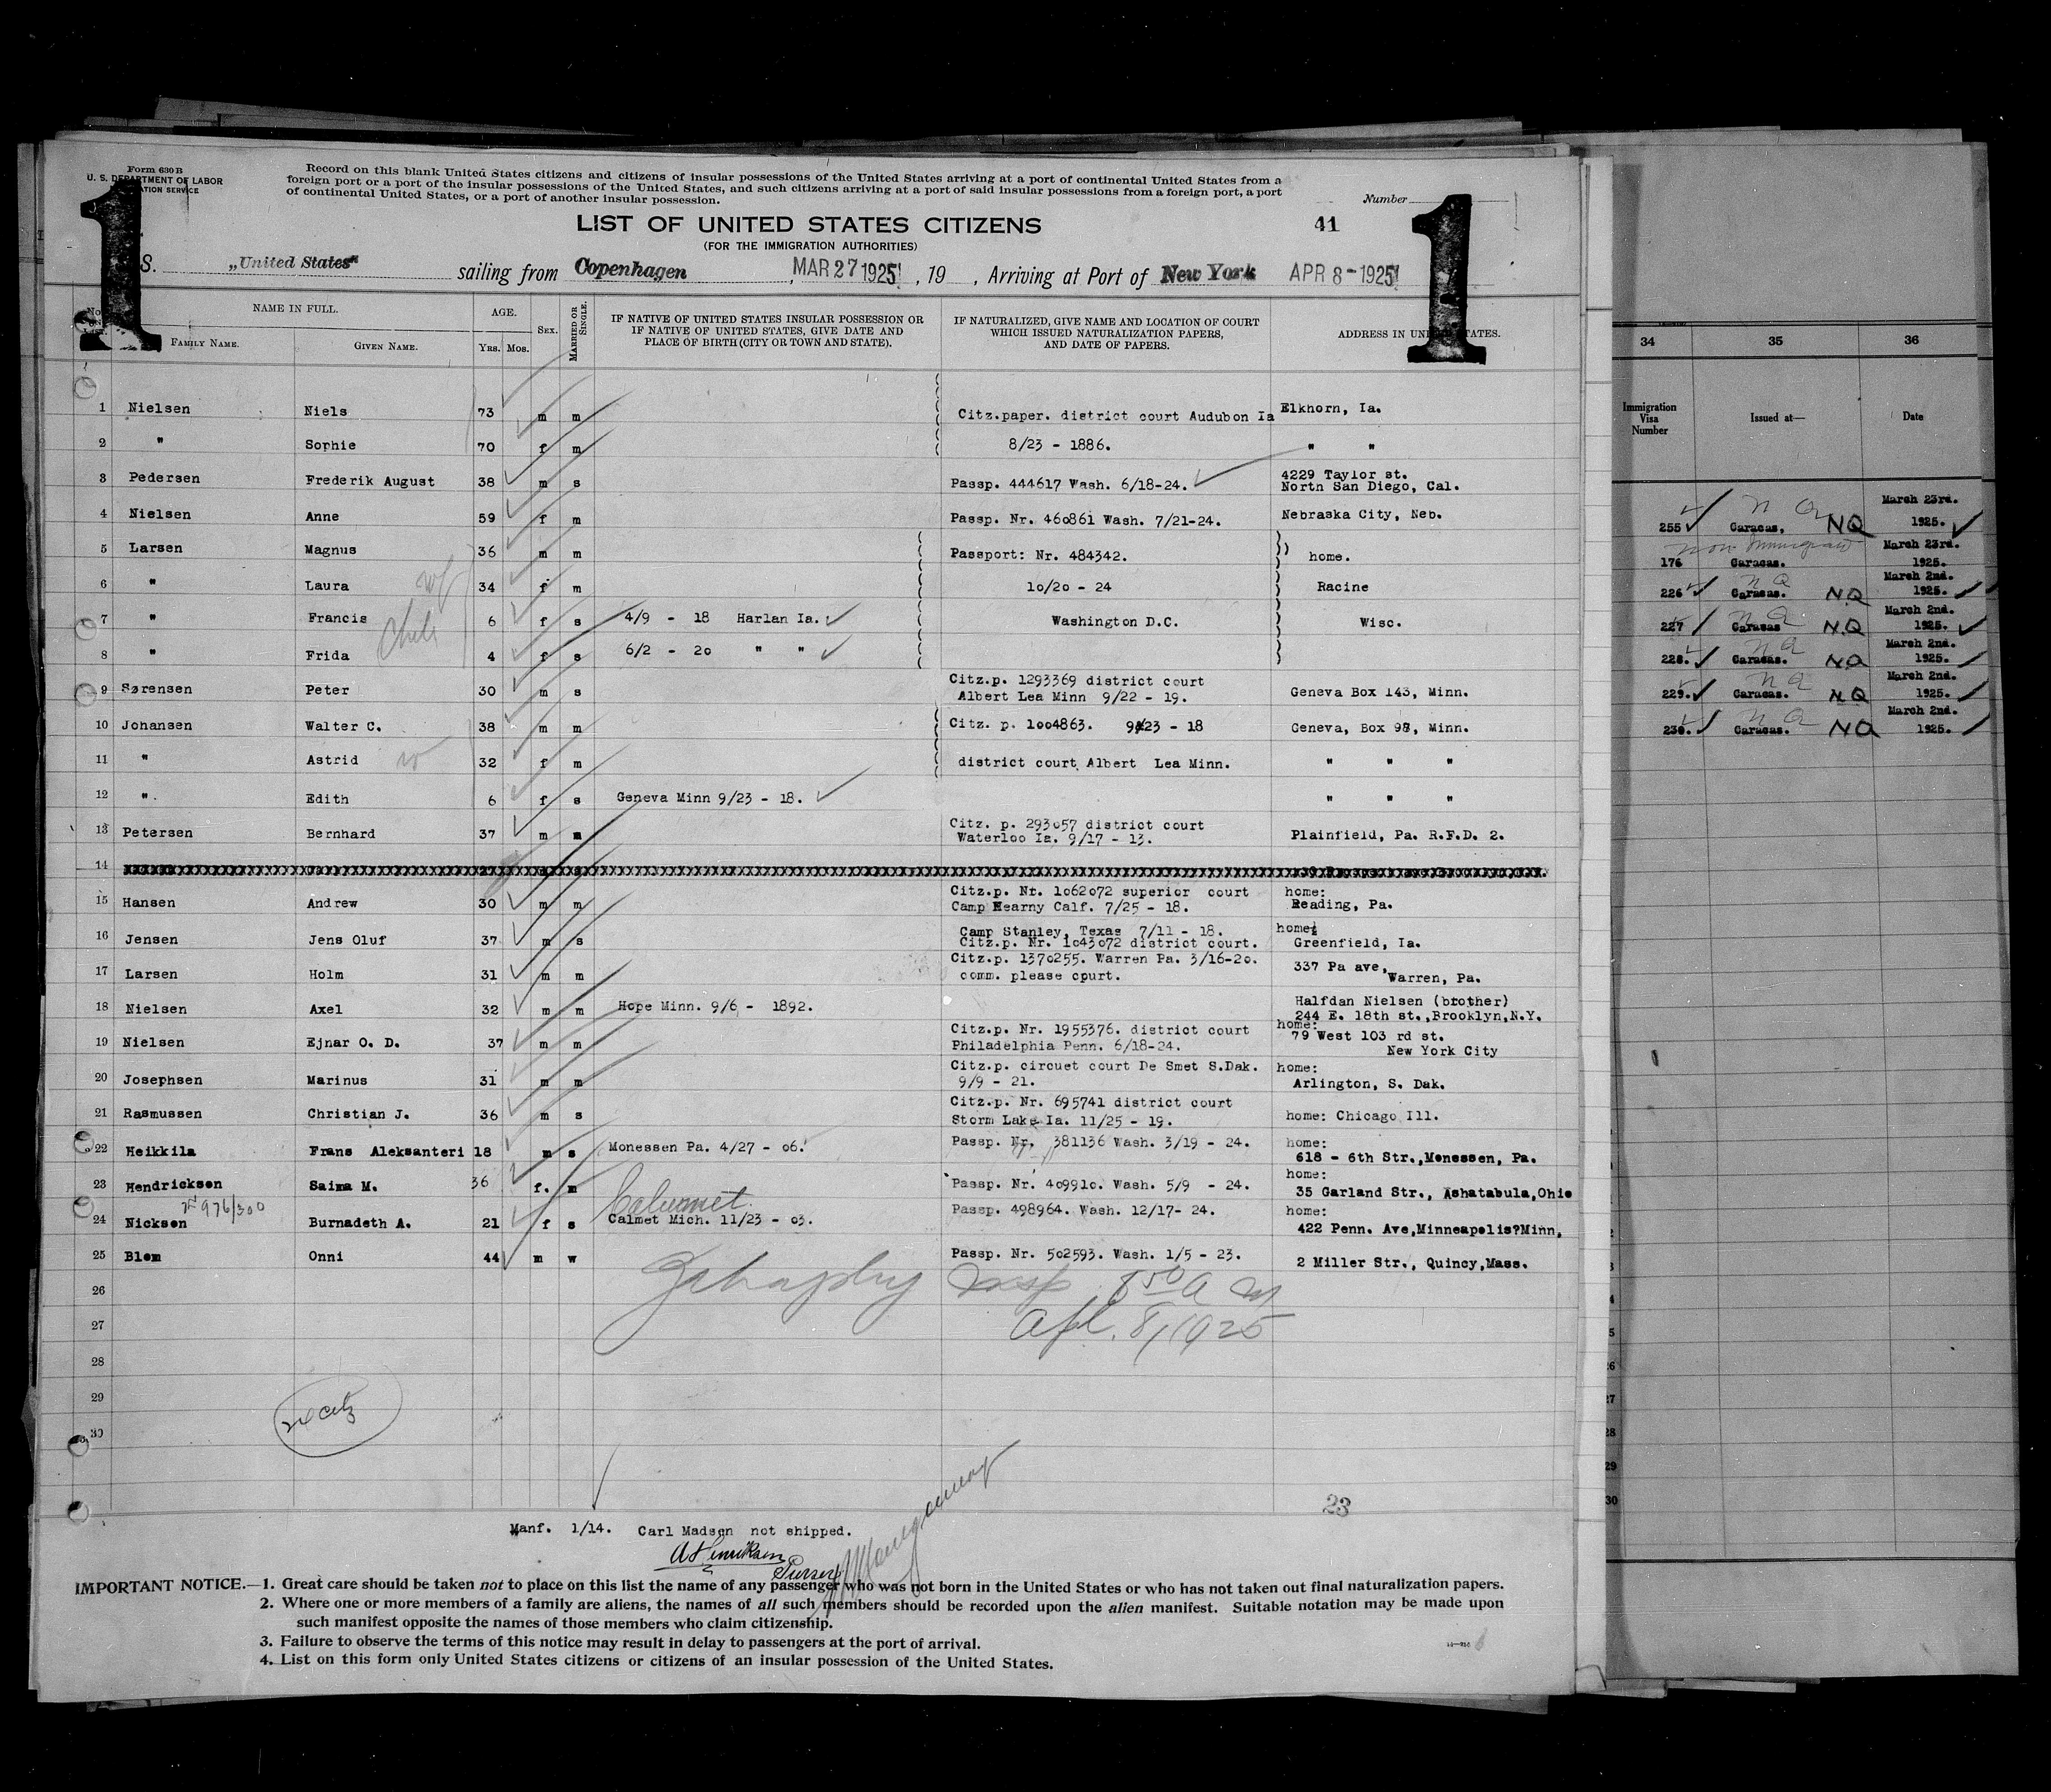 Form 630 B
U. S. DEPARTMENT OF LABOR
Record on this blank United States citizens and citizens of insular possessions of the United States arriving at a port of continental United States from a
foreign port or a port of the insular possessions of the United States, and such citizens arriving at a port of said insular possessions from a foreign port, a port
of continental United States, or a port of another insular possession.
Number
1
1
LIST OF UNITED STATES CITIZENS
41
(FOR THE IMMIGRATION AUTHORITIES)
S. „United States" sailing from Copenhagen, MAR 27 1925, 19 , Arriving at Port of New York APR 8-1925
NAME IN FULL. AGE. SEX. MARRIED OR SINGLE. IF NATIVE OF UNITED STATES INSULAR POSSESSION OR IF NATIVE OF UNITED STATES, GIVE DATE AND PLACE OF BIRTH (CITY OR TOWN AND STATE). IF NATURALIZED, GIVE NAME AND LOCATION OF COURT WHICH ISSUED NATURALIZATION PAPERS, AND DATE OF PAPERS. ADDRESS IN UNITED STATES.
FAMILY NAME. GIVEN NAME. Yrs. Mos.
1 Nielsen Niels 73 m m Citz.paper. district court Audubon Ia Elkhorn, Ia.
2 " Sophie 70 f m 8/23 - 1886. " "
3 Pedersen Frederik August 38 m s Passp. 444617 Wash. 6/18-24. 4229 Taylor st.
Nortn San Diego, Cal.
4 Nielsen Anne 59 f m Passp. Nr. 460861 Wash. 7/21-24. Nebraska City, Neb.
5 Larsen Magnus 36 m m Passport: Nr. 484342. home.
6 " Laura 34 f m 10/20 - 24 Racine
7 " Francis 6 f s 4/9 - 18 Harlan Ia. Washington D.C. Wisc.
8 " Frida 4 f s 6/2 - 20 " "
9 Sørensen Peter 30 m s Citz.p. 1293369 district court
Albert Lea Minn 9/22 - 19. Geneva Box 143, Minn.
10 Johansen Walter C. 38 m m Citz. p. 1004863. 9/23 - 18 Geneva, Box 98, Minn.
11 " Astrid 32 f m district court Albert Lea Minn. " " "
12 ". Edith 6 f s Geneva Minn 9/23 - 18. " " "
13 Petersen Bernhard 37 m Citz. p. 293057 district court
Waterloo Ia. 9/17 - 13. Plainfield, Pa. R.F.D. 2.
14
15 Hansen Andrew 30 m m Citz.p. Nr. 1062072 superior court
Camp Kearny Calf. 7/25 - 18. home:
Reading, Pa.
16 Jensen Jens Oluf 37 m s Camp Stanley, Texas 7/11 - 18.
Citz.p. Nr. 1043072 district court. home:
Greenfield, Ia.
17 Larsen Holm 31 m m Citz.p. 1370255. Warren Pa. 3/16-20.
comm. please cpurt. 337 Pa ave,
Warren, Pa.
18 Nielsen Axel 32 m m Hope Minn. 9/6 - 1892. Halfdan Nielsen (brother)
244 E. 18th st.,Brooklyn,N.Y.
19 Nielsen Ejnar O. D. 37 m m Citz.p. Nr. 1955376. district court
Philadelphia Penn. 6/18-24. home:
79 West 103 rd st.
New York City
20 Josephsen Marinus 31 m m Citz.p. circuet court De Smet S.Dak.
9/9 - 21. home:
Arlington, S. Dak.
21 Rasmussen Christian J. 36 m s Citz.p. Nr. 695741 district court
Storm Lake Ia. 11/25 - 19. home: Chicago Ill.
22 Heikkila Frans Aleksanteri 18 m s Monessen Pa. 4/27 - 06. Passp. Nr. 381136 Wash. 3/19 - 24. home:
618 - 6th Str.,Monessen, Pa.
23 Hendrickson Saima M. 36 f. m Passp. Nr. 409910. Wash. 5/9 - 24. home:
35 Garland Str., Ashatabula,Ohio
976/300
Calumet
24 Nickson Burnadeth A. 21 f s Calmet Mich. 11/23 - 03. Passp. 498964. Wash. 12/17- 24. home:
422 Penn. Ave,Minneapolis?Minn,
25 Blom Onni 44 m w Passp. Nr. 502593. Wash. 1/5 - 23. 2 Miller Str., Quincy,Mass.
26
27
Insp 8 50 a m
Apl. 8, 1925
28
29
30
23
Manf. 1/14. Carl Madsen not shipped.
A Henriksen
Purser
IMPORTANT NOTICE.—1. Great care should be taken not to place on this list the name of any passenger who was not born in the United States or who has not taken out final naturalization papers.
2. Where one or more members of a family are aliens, the names of all such members should be recorded upon the alien manifest. Suitable notation may be made upon
such manifest opposite the names of those members who claim citizenship.
3. Failure to observe the terms of this notice may result in delay to passengers at the port of arrival.
4. List on this form only United States citizens or citizens of an insular possession of the United States.
34 35 36
Immigration Visa Number Issued at— Date
255 Caracas. NQ March 23rd. 1925.
Non Immigrant
176 Caracas. March 23rd. 1925.
226 Caracas. N.Q March 2nd. 1925.
227 Caracas N.Q March 2nd. 1925.
228. Caracas. N.Q March 2nd. 1925.
229. Caracas. N.Q March 2nd. 1925.
230. Caracas. NQ March 2nd. 1925.
29
30